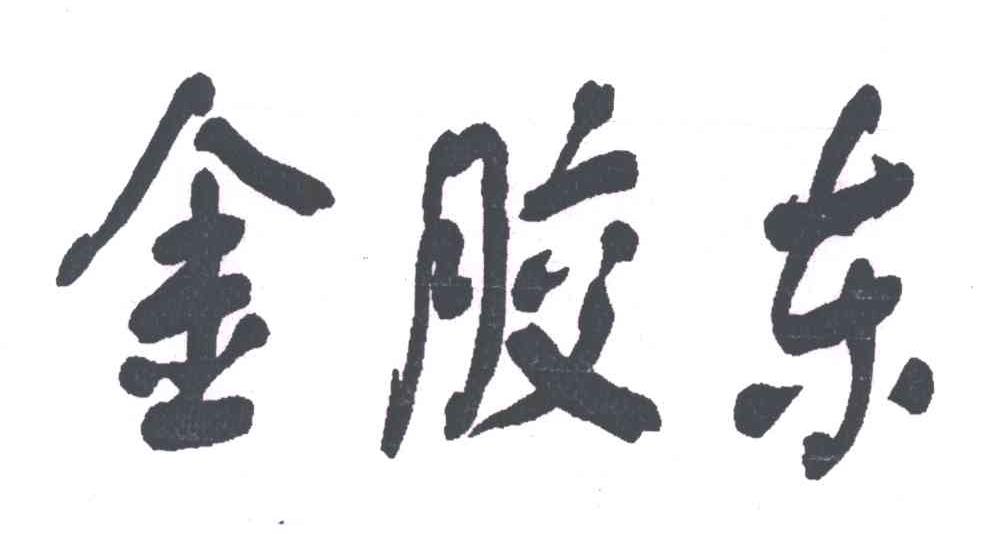 金胶东